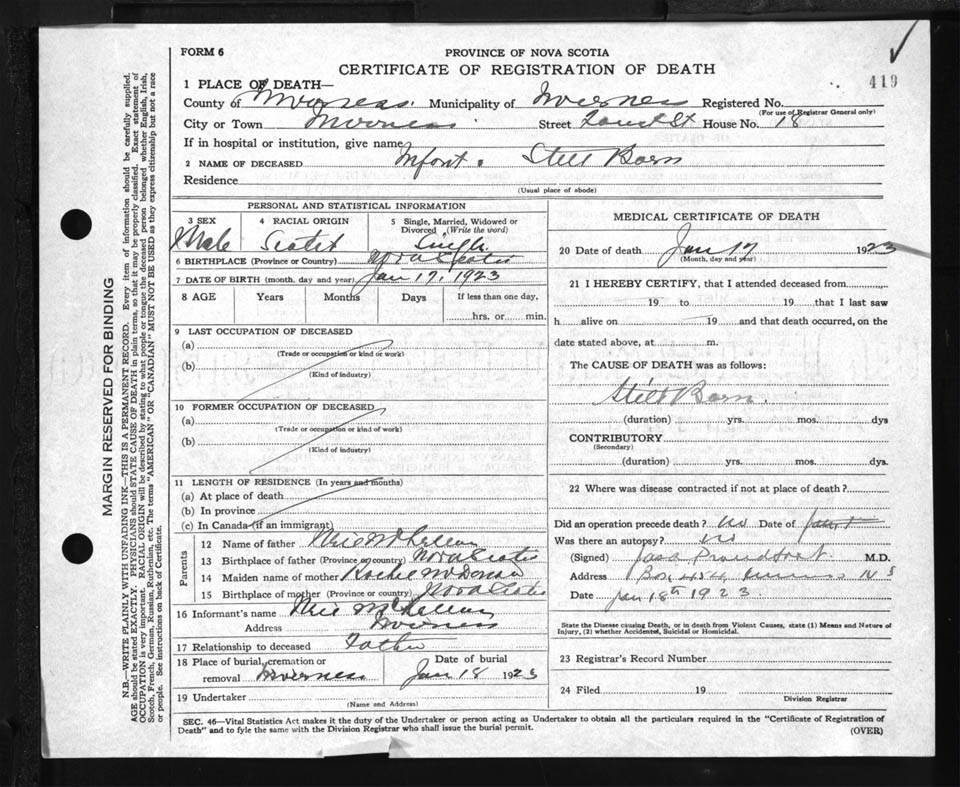 FORM 6
PROVINCE OF NOVA SCOTIA
CERTIFICATE OF REGISTRATION OF DEATH
419
1 PLACE OF DEATH—
County of Inverness. Municipality of Inverness Registered No.
(For use of Registrar General only)
City or Town Inverness Street St House No. 18
If in hospital or institution, give name
2 NAME OF DECEASED Infant. Still Born
Residence
(Usual place of abode)
PERSONAL AND STATISTICAL INFORMATION
3 SEX 4 RACIAL ORIGIN 5 Single, Married, Widowed or Divorced (Write the word)
Male Scotch Single
6 BIRTHPLACE (Province or Country) Nova Scotia
7 DATE OF BIRTH (month, day and year) Jan 17, 1923
8 AGE Years Months Days If less than one day,
hrs. or min.
9 LAST OCCUPATION OF DECEASED
(a)
(Trade or occupation or kind or work)
(b)
(Kind of industry)
10 FORMER OCCUPATION OF DECEASED
(a)
(Trade or occupation or kind of work)
(b)
(Kind of industry)
11 LENGTH OF RESIDENCE (In years and months)
(a) At place of death
(b) In province
(c) In Canada (if an immigrant)
Parents
12 Name of father Neil McLellan
13 Birthplace of father (Province or country) Nova Scotia
14 Maiden name of mother McDonald
15 Birthplace of mother (Province or country) Nova Scotia
16 Informant's name Neil McLellan
Address Inverness
17 Relationship to deceased Father
18 Place of burial, cremation or removal Inverness Date of burial Jan 18 1923
19 Undertaker
(Name and Address)
MEDICAL CERTIFICATE OF DEATH
20 Date of death Jan 17 1923
(Month, day and year)
21 I HEREBY CERTIFY, that I attended deceased from
19 to 19 that I last saw
h alive on 19 and that death occurred, on the
date stated above, at m.
The CAUSE OF DEATH was as follows:
Still Born.
(duration) yrs. mos. dys
CONTRIBUTORY
(Secondary)
(duration) yrs. mos. dys.
22 Where was disease contracted if not at place of death?
Did an operation precede death? No Date of
Was there an autopsy? No
(Signed) Proudfoot M.D.
Address Box Inverness N S
Date Jan 18th 1923.
State the Disease causing Death, or in death from Violent Causes, state (1) Means and Nature of
Injury, (2) whether Accidental, Suicidal or Homicidal.
23 Registrar's Record Number
24 Filed 19
Division Registrar
SEC. 46—Vital Statistics Act makes it the duty of the Undertaker or person acting as Undertaker to obtain all the particulars required in the "Certificate of Registration of
Death" and to fyle the same with the Division Registrar who shall issue the burial permit.
(OVER)
MARGIN RESERVED FOR BINDING
N.B.—WRITE PLAINLY WITH UNFADING INK—THIS IS A PERMANENT RECORD. Every item of information should be carefully supplied.
AGE should be stated EXACTLY. PHYSICIANS should STATE CAUSE OF DEATH in plain terms, so that it may be properly classified. Exact statement of
OCCUPATION is very important. RACIAL ORIGIN will be described by stating to what people or tongue the deceased person belonged whether English, Irish,
Scotch, French, German, Russian, Ruthenian, etc. The terms "AMERICAN" OR "CANADIAN" MUST NOT BE USED as they express citizenship but not a race
or people. See instructions on back of Certificate.